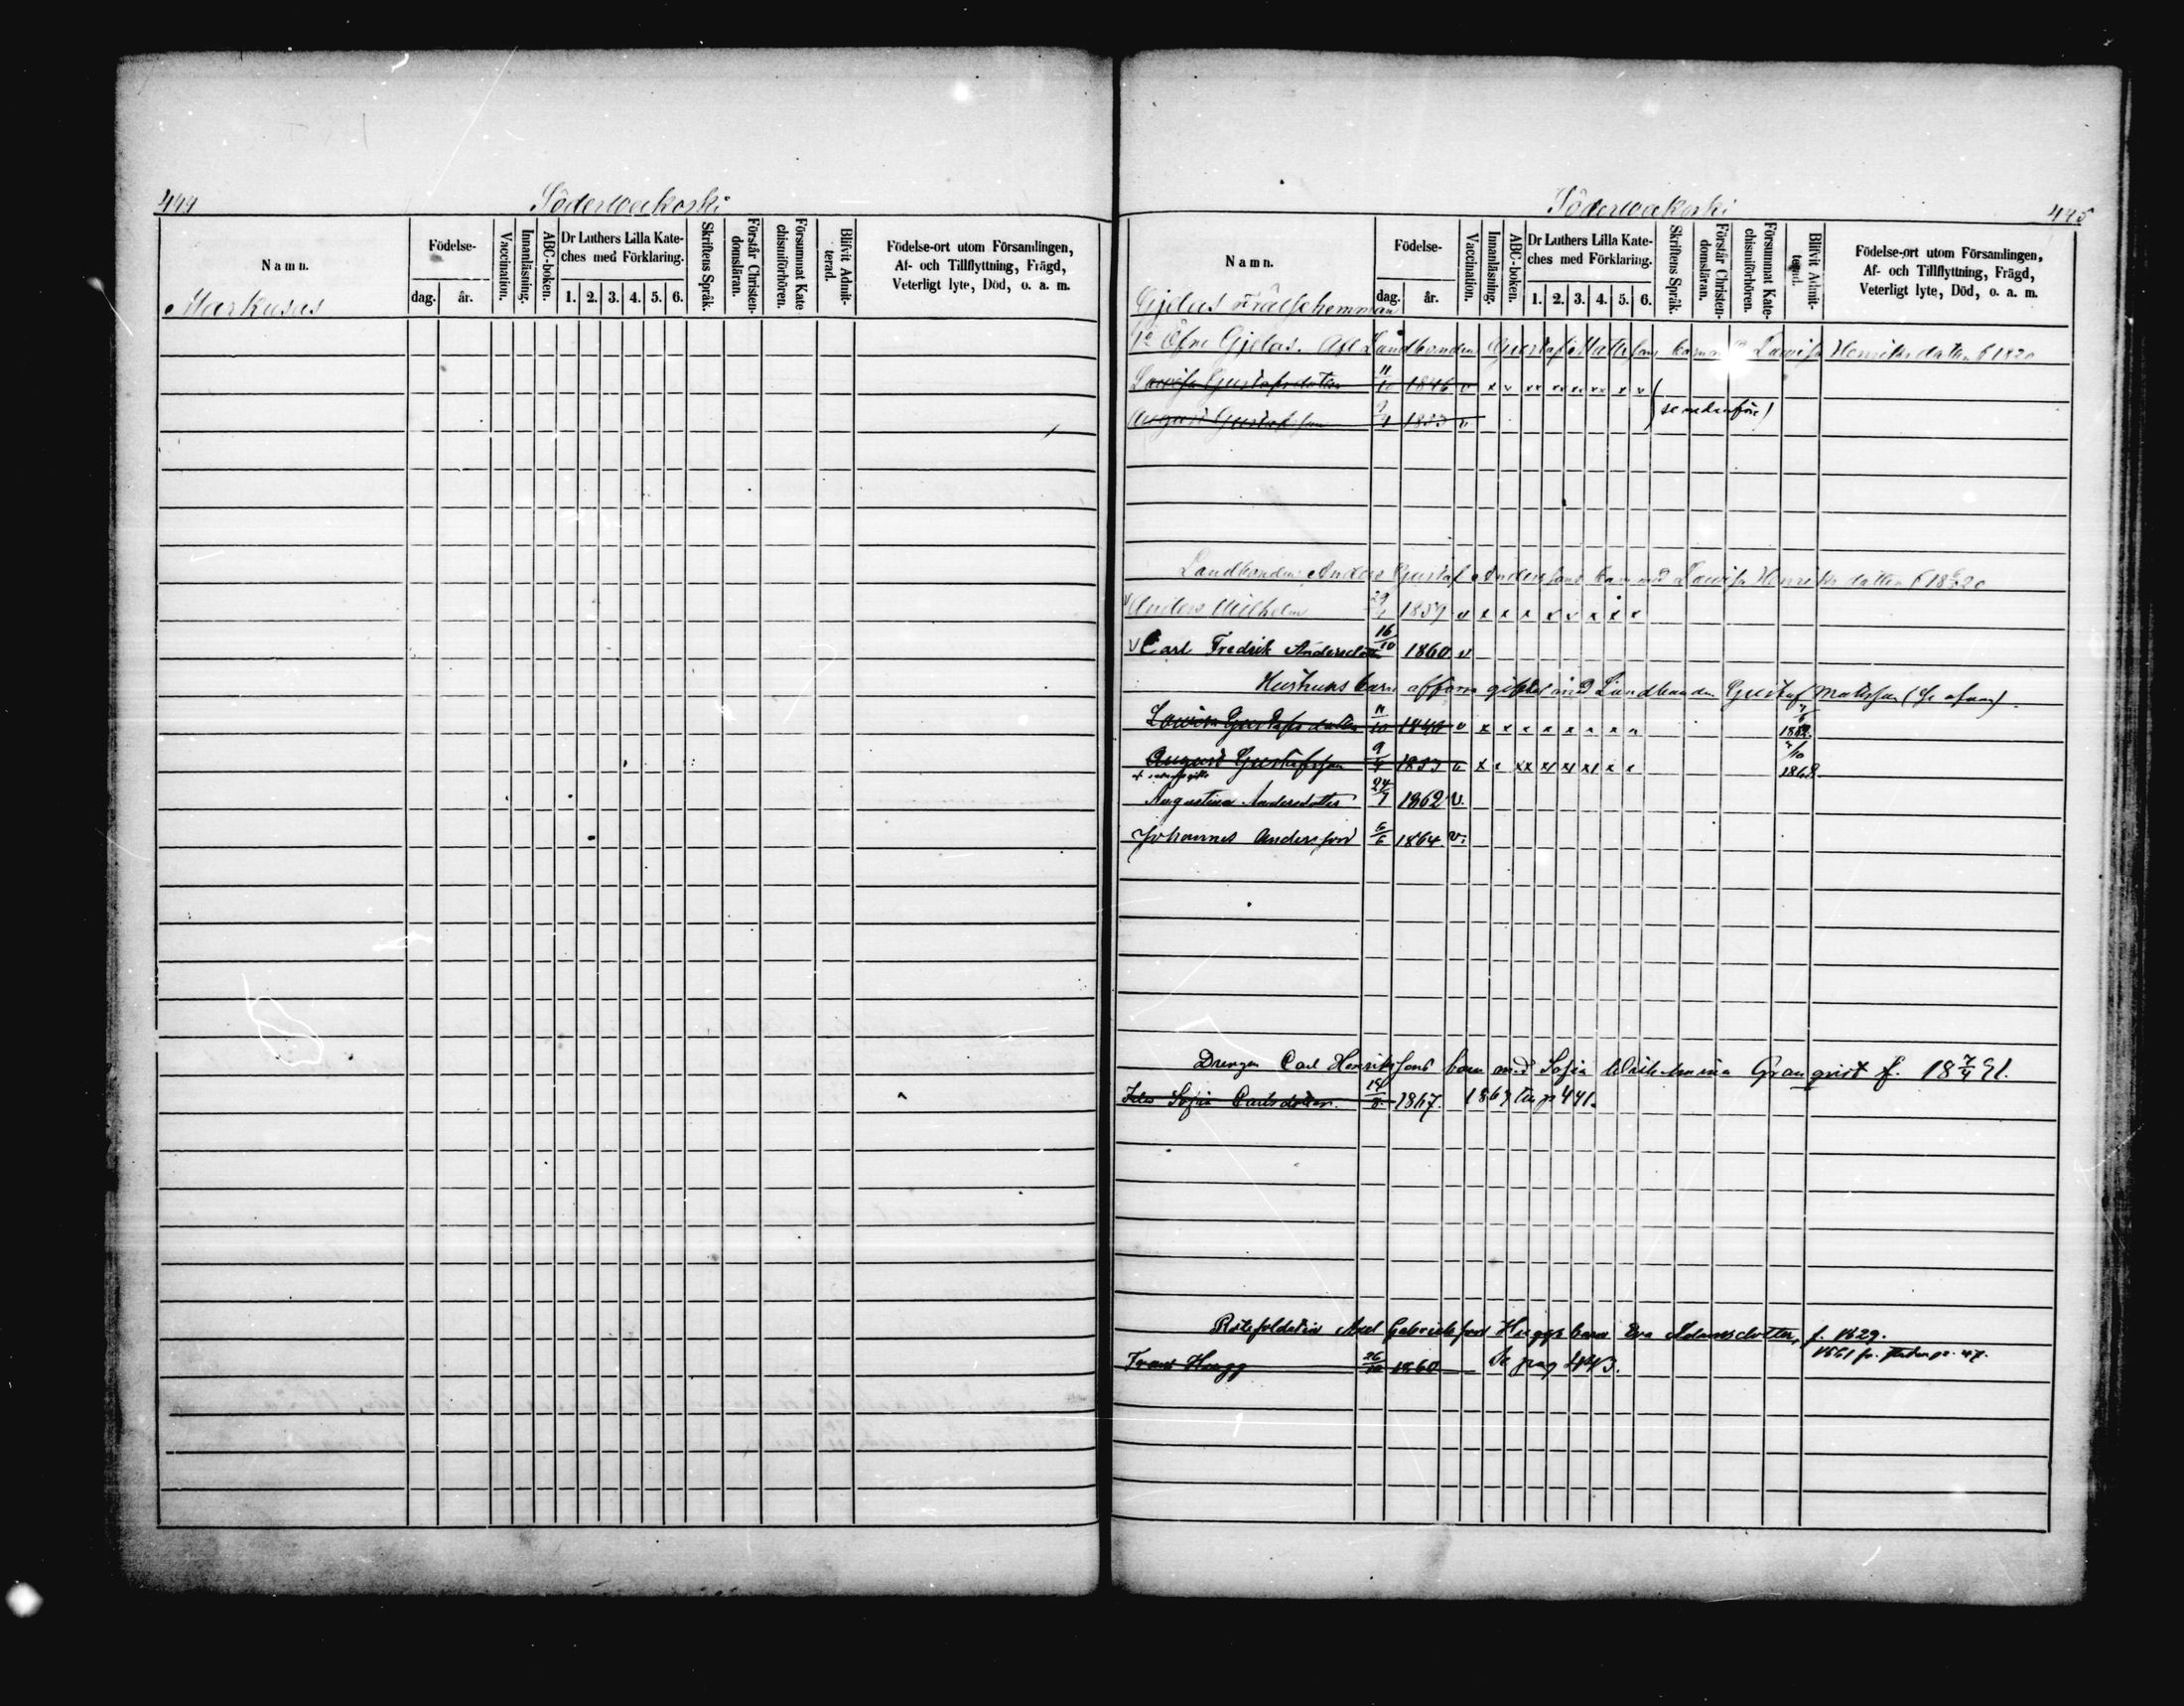 444
Söderveckoski
Namn.
Födelse-
dag. år.
Vaccination.
Innanläsning.
ABC-boken.
Dr Luthers Lilla Kate-
ches med Förklaring.
1. 2. 3. 4. 5. 6.
Skriftens Språk.
Förstår Christen-
domsläran.
Försummat Kate
chismiförhören.
Blifvit Admit-
terad.
Födelse-ort utom Församlingen,
Af- och Tillflyttning, Frägd,
Veterligt lyte, Död, o. a. m.
Markusas
Söderveckoski
445
Namn.
Födelse-
dag. år.
Vaccination.
Innanläsning.
ABC-boken.
Dr Luthers Lilla Kate-
ches med Förklaring.
1. 2. 3. 4. 5. 6.
Skriftens Språk.
Förstår Christen-
domsläran.
Försummat Kate-
chismiförhören.
Blifvit Admit-
terad.
Födelse-ort utom Församlingen,
Af- och Tillflyttning, Frägd,
Veterligt lyte, Död, o. a. m.
Gjelas Frälsehemman
Öfre Gjelas. Landbonden Gustaf Matssons barn Lovisa Henriksdotter f 1820
Lovisa Gustafsdotter 11/10 1846 v x v
(se nedanföre)
August Gustafsson 9/4 1853 v
Landbonden Anders Gustaf Anderssons barn med Lovisa Henriksdotter f 1820
Anders Wilhelm 29 1857 v x x x x v x x x
v Carl Fredrik Andersson 16/10 1860 v
Hustruns barn med Landbonden Gustaf Matsson (se ofvan).
Lovisa Gustafsdotter 11/10 1846 v x x x x x x x 1862.
August Gustafsson 9/4 1853 v x x xx x x x x x 1868
Augustina Andersdotter 24/7 1862 v.
Johannes Andersson 6/6 1864 v.
Drengen Carl Henrikssons barn med Sofia Wilhelmina Granqvist f. 18 7/4 41.
Ida Sofia Carlsdotter. 18/8 1867. 1869 till p 441.
Axel Gabrielsson Huggs barn Eva Adamsdotter, f. 1829.
Frans Hugg 26/10 1860 Se pag 443.